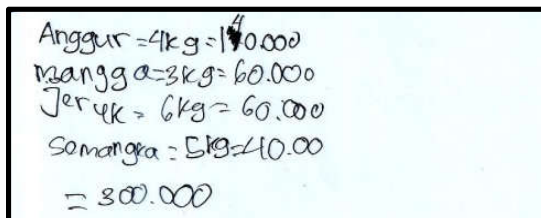 Anggur = 4kg = 140.000
mangga = 3kg = 60.000
Jeruk = 6kg = 60.000
Semangka = 5kg = 40.00
= 300.000